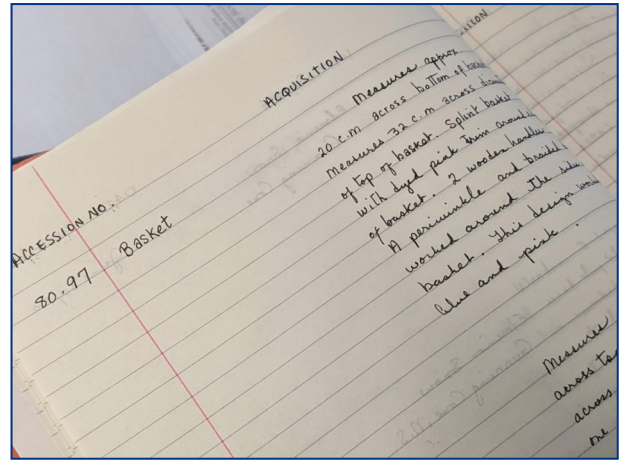 ACQUISITION
ACCESSION NO.
80.97 Basket
Measures approx
20 c.m across bottom of
Measures 32 c.m across
of top of basket. Splint basket
with dyed pink trim around
of basket. 2 wooden handles
A periwinkle and braided
worked around the
basket. This design
blue and pink.
Measures
across to
across
one